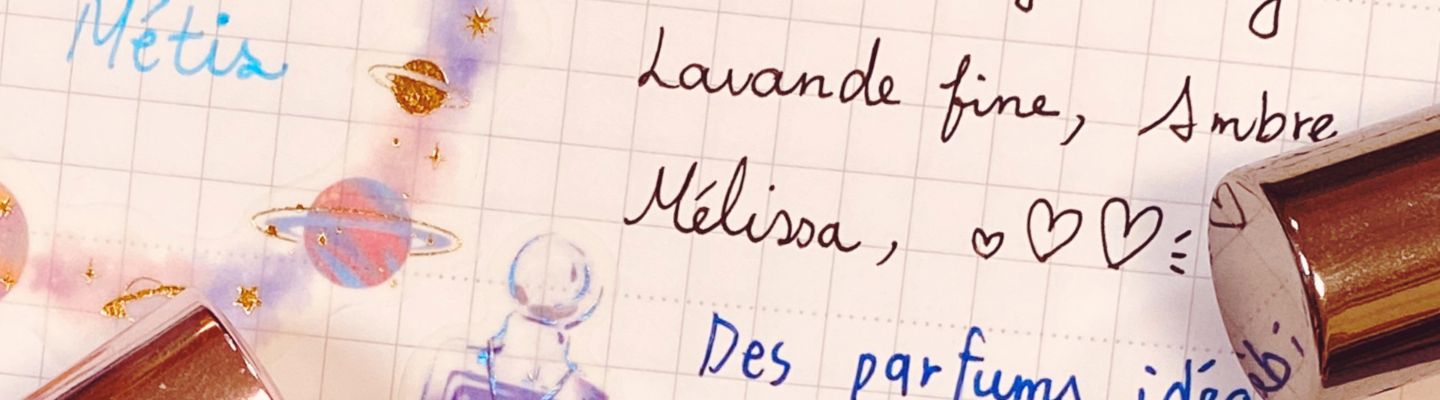 Métis
Lavande fine, Ambre
Mélissa,
Des parfums